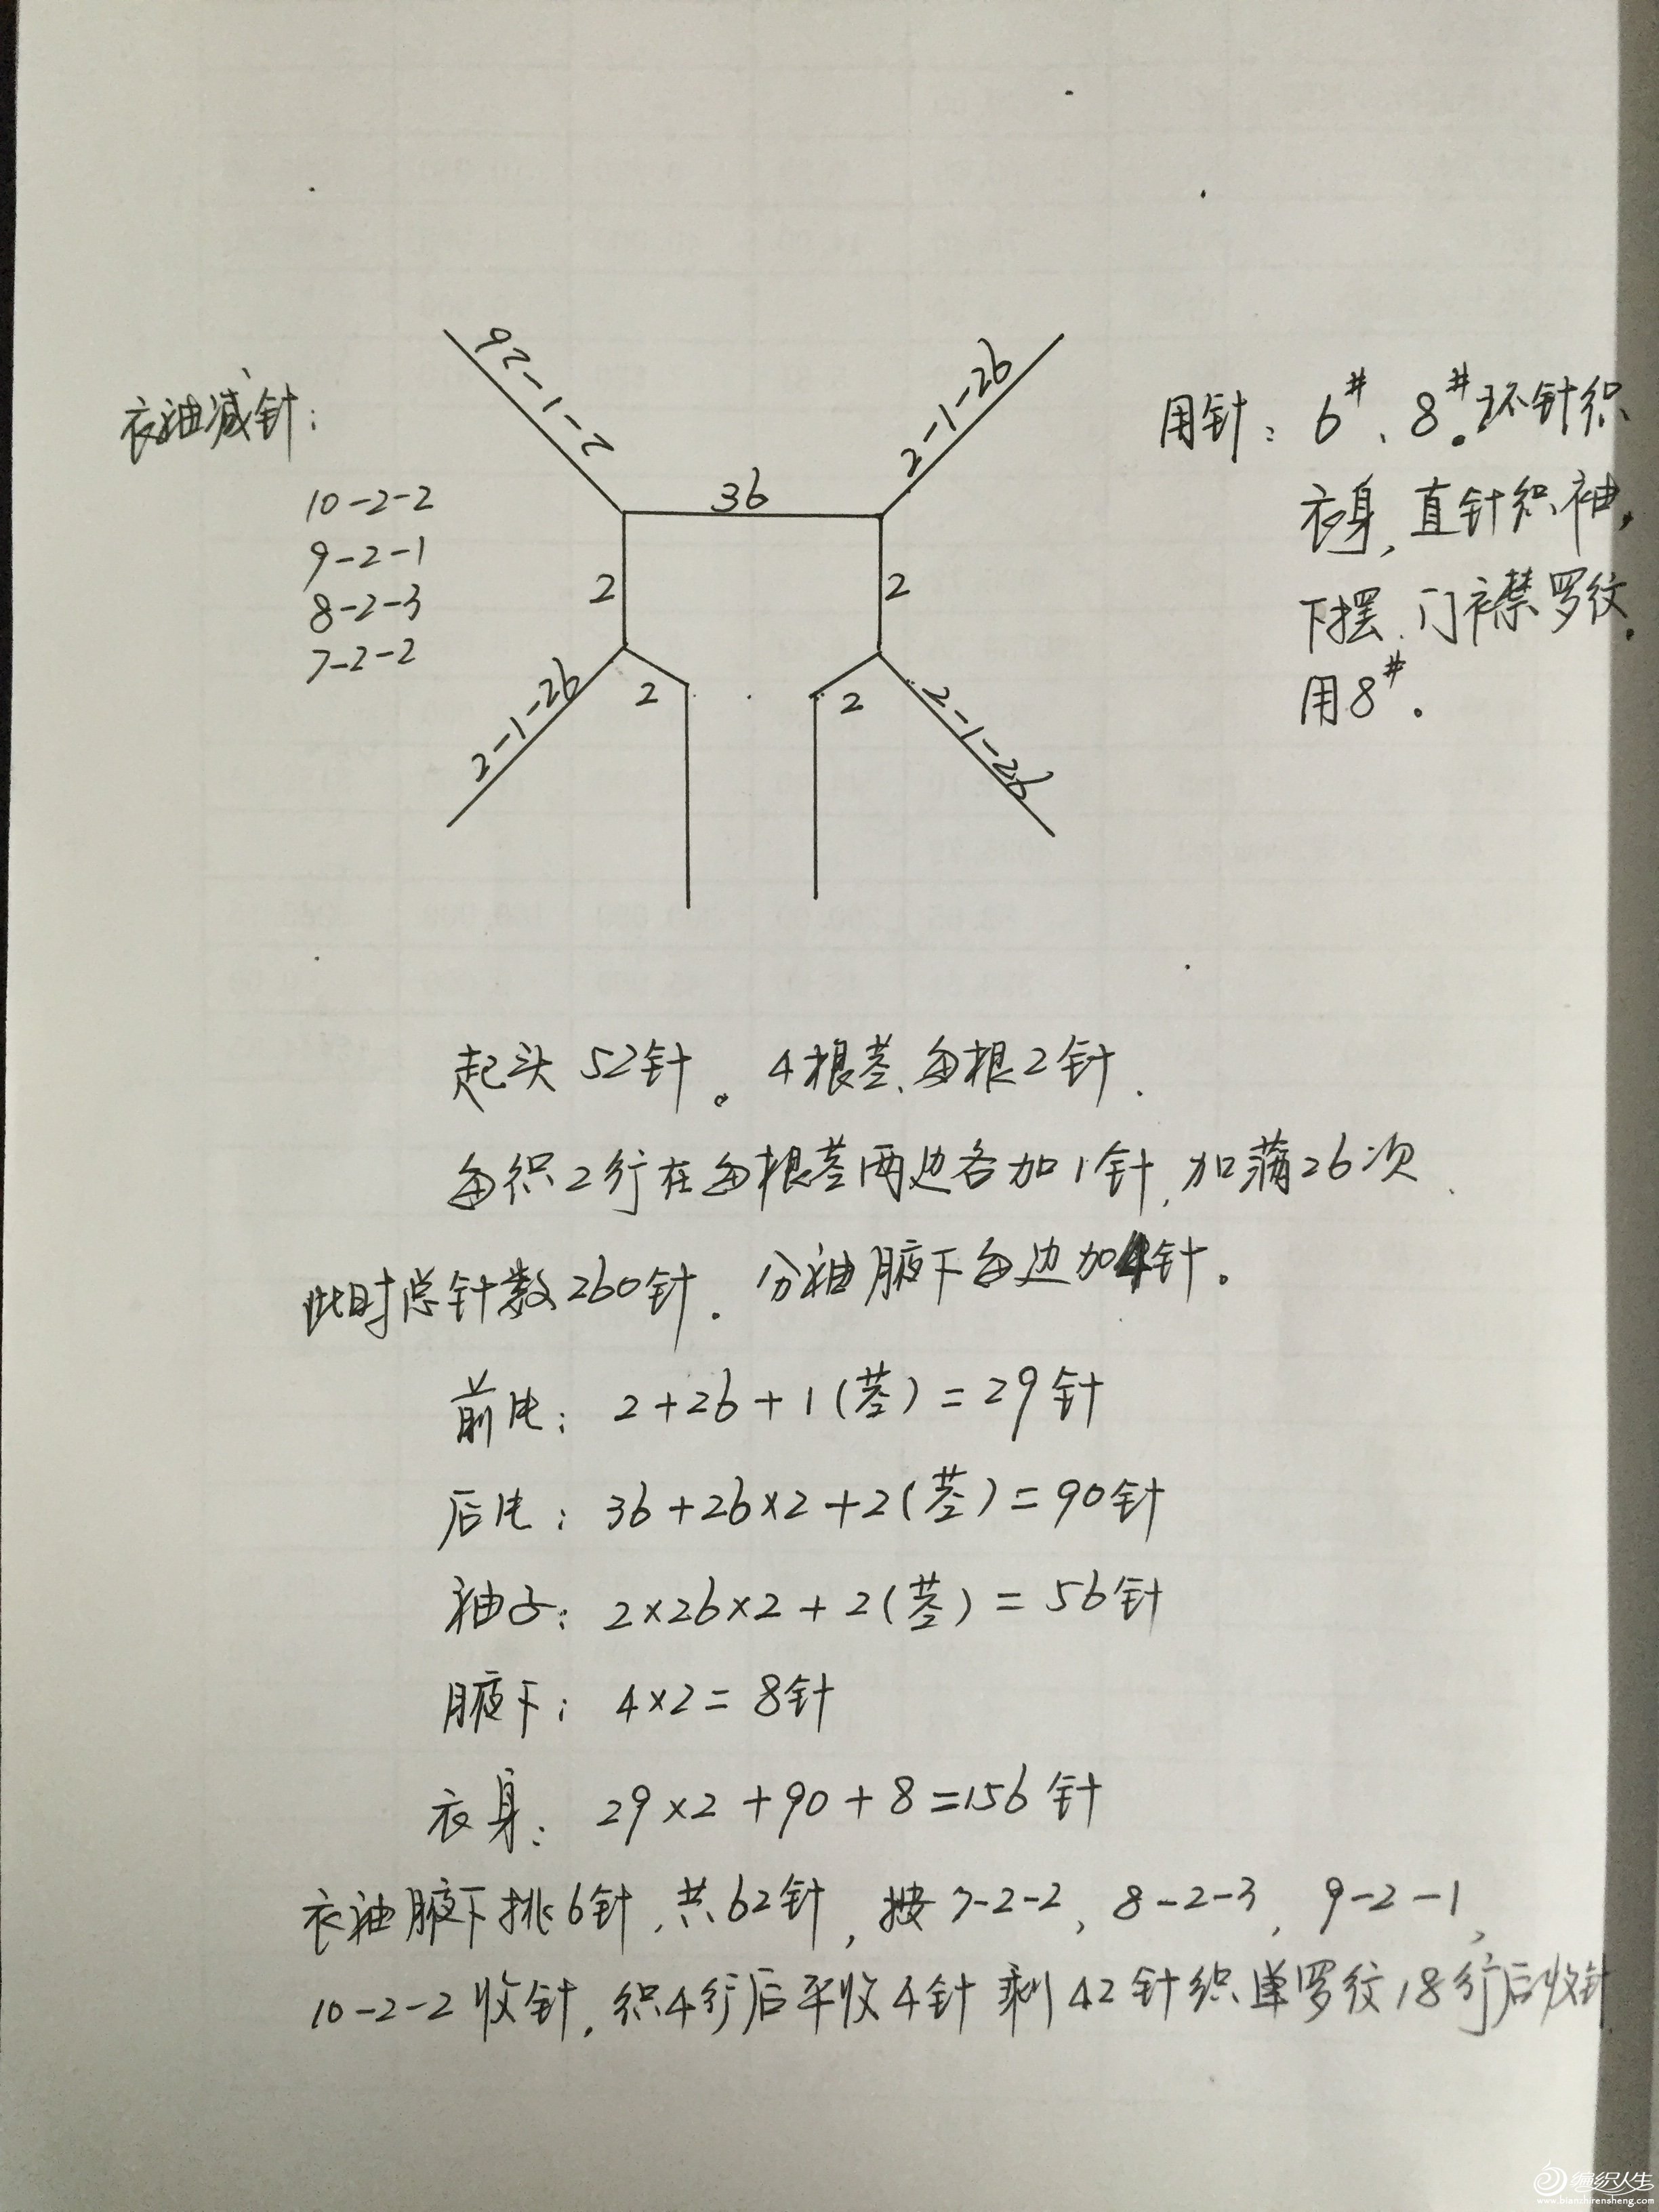 2-1-26
2-1-26
衣袖减针：
用针：6#、8#。环针织
36
衣身，直针织袖，
10-2-2
9-2-1
2
2
8-2-3
下摆、门襟罗纹。
7-2-2
2-1-26
2
2
2-1-26
用8#。
起头52针。4根茎、每根2针.
每织2行在每根茎两边各加1针,加满26次.
此时总针数260针.分袖腋下每边加4针。
前片：2+26+1(茎)=29针
后片：36+26×2+2(茎)=90针
袖子：2×26×2+2(茎)=56针
腋下：4×2=8针
衣身：29×2+90+8=156针
衣袖腋下挑6针,共62针,按7-2-2、8-2-3、9-2-1、
10-2-2收针,织4行后平收4针剩42针织单罗纹18行后收针.
编织人生
www.bianzhirensheng.com